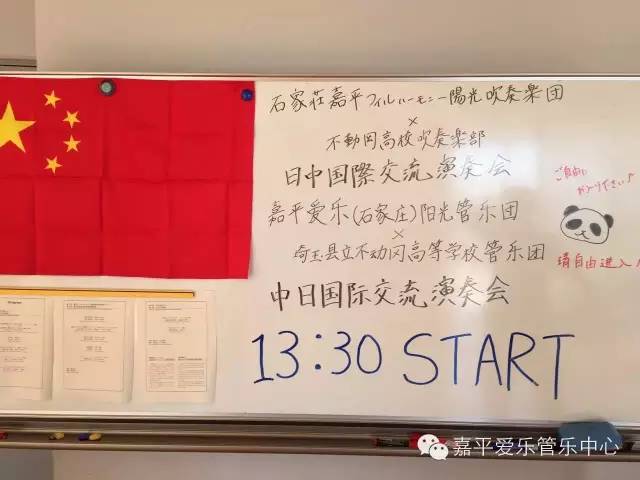 石家荘嘉平フィルハーモニー陽光吹奏楽団
×
不動岡高校吹奏楽部
日中国際交流演奏会
嘉平爱乐(石家庄)阳光管乐团
×
埼玉县立不动冈高等学校管乐团
中日国际交流演奏会
13:30 START
ご自由に
请自由进入
嘉平爱乐管乐中心